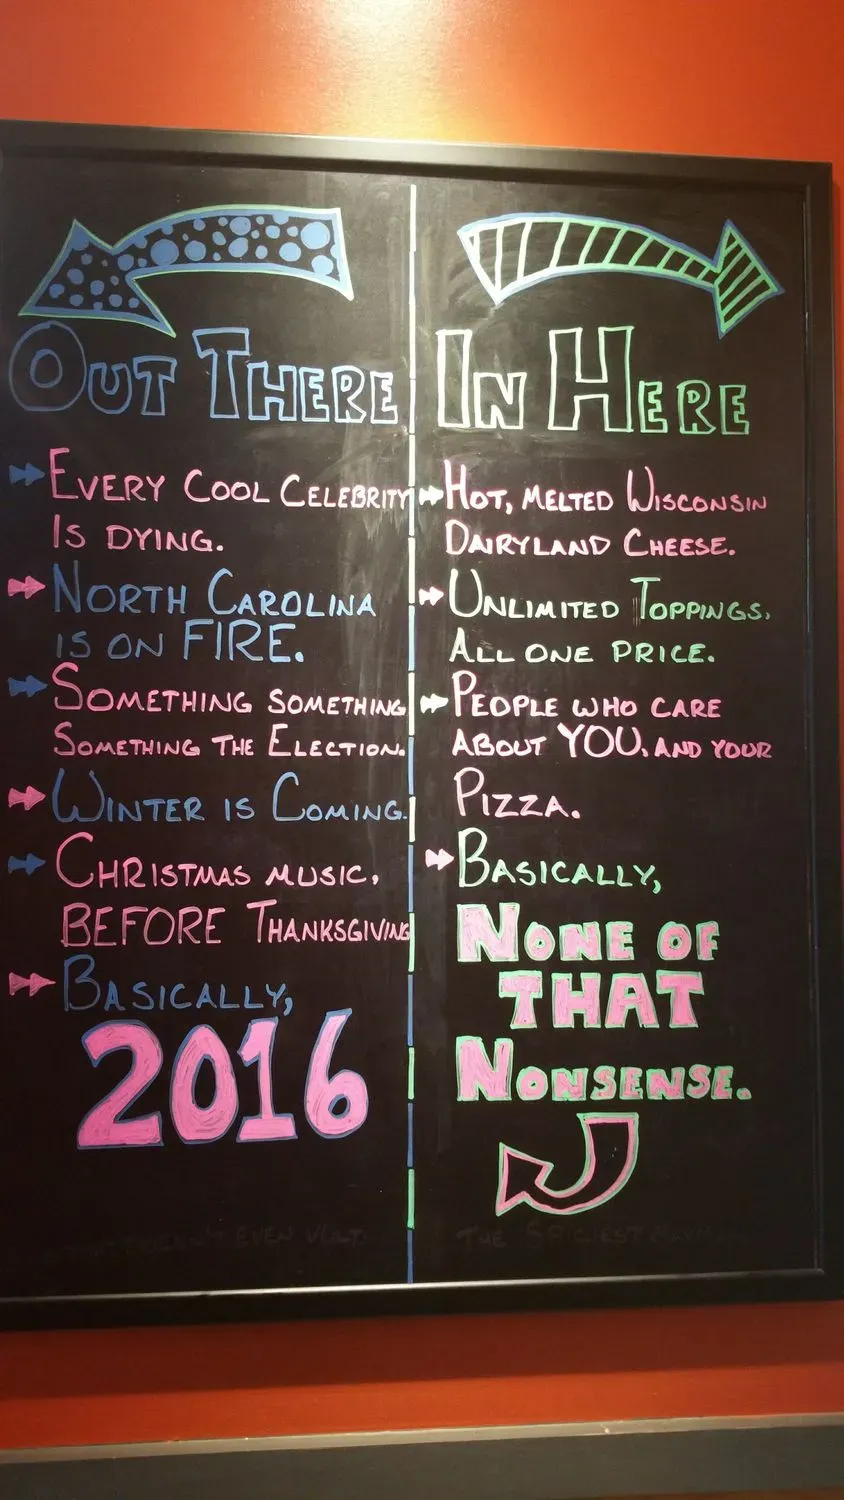 Out There
Every Cool Celebrity
Is dying.
North Carolina
is on FIRE.
Something something
Something the Election.
Winter is Coming.
Christmas music,
BEFORE Thanksgiving
Basically,
2016
In Here
Hot, melted Wisconsin
Dairyland Cheese.
Unlimited Toppings.
All one price.
People who care
about YOU. and your
Pizza.
Basically,
None of
THAT
Nonsense.
EVEN
THE SPICIEST